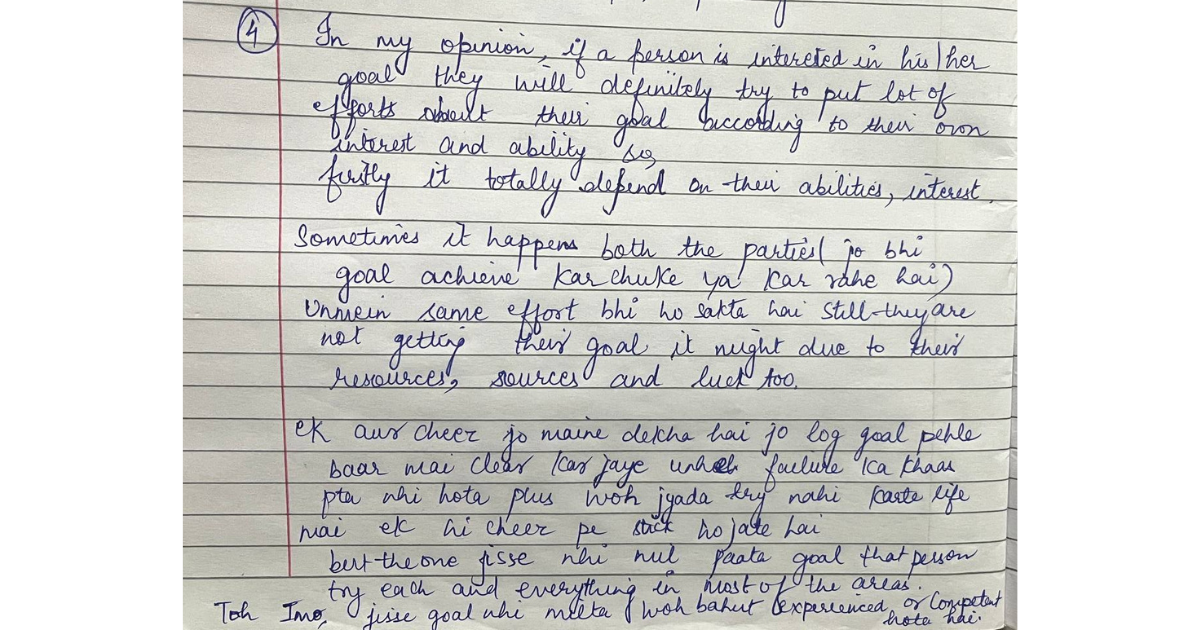 4
In my opinion, if a person is intereted in his/her
goal they will definitely try to put lot of
efforts about their goal according to their own
interest and ability so,
firstly it totally depend on their abilities, interest.
Sometimes it happens both the parties( jo bhi
goal achieve kar chuke ya kar rahe hai)
Unmein same effort bhi ho sakta hai still they are
not getting their goal it might due to their
resources, sources and luck too.
ek aur cheez jo maine dekha hai jo log goal pehle
baar mai clear kar jaye unhe failure ka khaas
pta nhi hota plus woh jyada try nahi karte life
mai ek hi cheez pe stick ho jate hai
but the one jisse nhi mil paata goal that person
try each and everything in most of the areas.
Toh Imo, jisse goal nhi milta woh bahut experienced or Competent
hota hai.